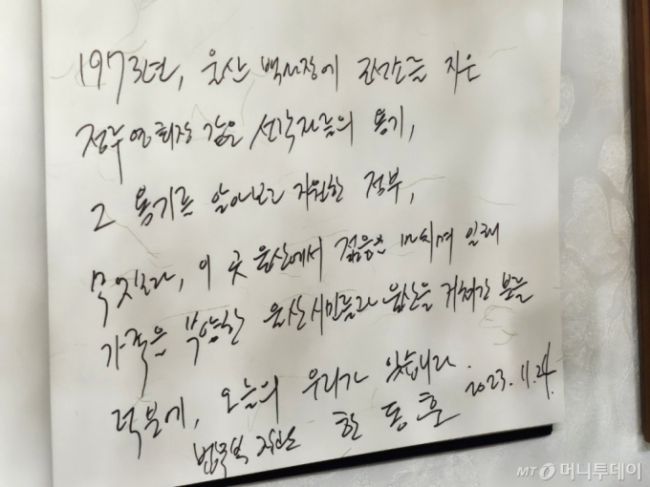 1973년, 울산 백사장에 조선소를 지은
정주영 회장 같은 선각자들의 용기,
그 용기를 알아보고 지원한 정부,
무엇보다, 이 곳 울산에서 젊음을 바치며 일해
가족을 부양한 울산시민들과 울산을 거쳐간 분들
덕분에, 오늘의 우리가 있습니다.
법무부 장관 한동훈 2023. 11. 24.
MT 머니투데이